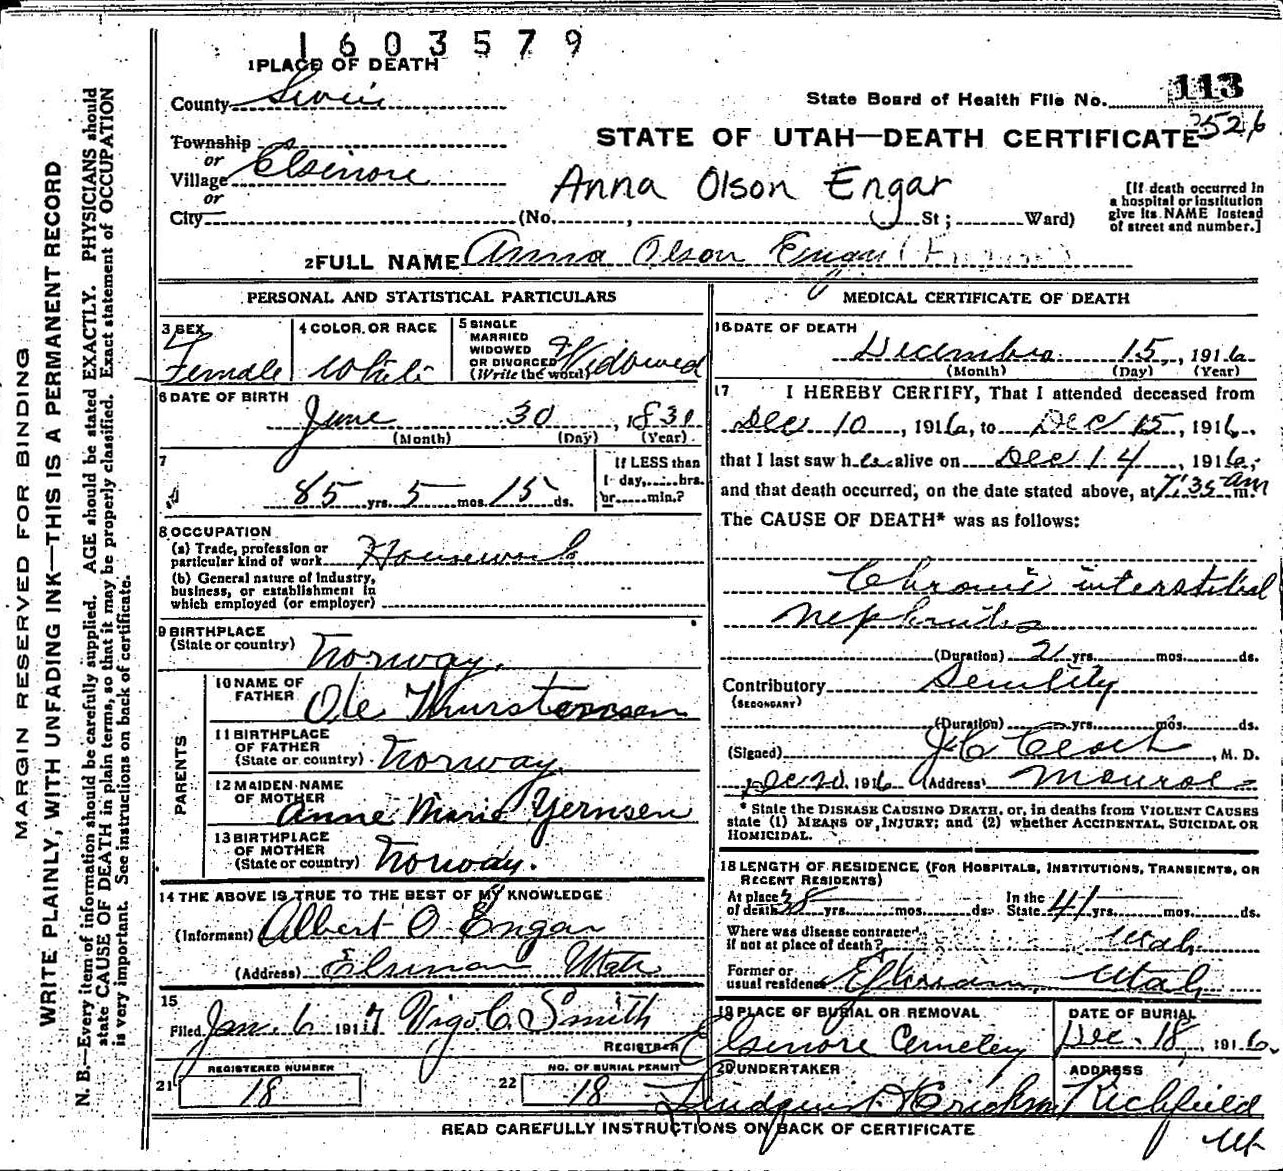 1603579
1 PLACE OF DEATH
County Sevier
State Board of Health File No. 113
3526
STATE OF UTAH—DEATH CERTIFICATE
Township
or
Village Elsinore
or
City
Anna Olson Engar
(No. , St ; Ward)
[If death occurred in
a hospital or institution
give its NAME instead
of street and number.]
2 FULL NAME Anna Olson Engar
PERSONAL AND STATISTICAL PARTICULARS
3 SEX
Female
4 COLOR OR RACE
White
5 SINGLE
MARRIED
WIDOWED
OR DIVORCED
(Write the word)
Widowed
6 DATE OF BIRTH
June 30, 1831
(Month) (Day) (Year)
7
85 yrs. 5 mos. 15 ds.
If LESS than
1 day, hrs.
or min.?
8 OCCUPATION
(a) Trade, profession or
particular kind of work Housework
(b) General nature of Industry,
business, or establishment in
which employed (or employer)
9 BIRTHPLACE
(State or country) Norway.
PARENTS
10 NAME OF
FATHER
Ole Thurstensen
11 BIRTHPLACE
OF FATHER
(State or country) Norway.
12 MAIDEN NAME
OF MOTHER
Anne Marie Yernsen
13 BIRTHPLACE
OF MOTHER
(State or country) Norway.
14 THE ABOVE IS TRUE TO THE BEST OF MY KNOWLEDGE
(Informant) Albert O. Engar
(Address) Elsinore Utah
15
Filed Jan. 6 1917 Vigo C. Smith
REGISTRER
21
REGISTERED NUMBER
18
22
NO. OF BURIAL PERMIT
18
MEDICAL CERTIFICATE OF DEATH
16 DATE OF DEATH
December 15, 1916
(Month) (Day) (Year)
17 I HEREBY CERTIFY, That I attended deceased from
Dec 10, 1916, to Dec 15, 1916.
that I last saw her alive on Dec 14, 1916,
and that death occurred, on the date stated above, at 7:35 am m.
The CAUSE OF DEATH* was as follows:
Chronic interstitial
nephritis
(Duration) 2 yrs. mos. ds.
Contributory Senility
(SECONDARY)
(Duration) yrs. mos. ds.
(Signed) M. D.
Dec 20, 1916 (Address) Monroe
* State the DISEASE CAUSING DEATH, or, in deaths from VIOLENT CAUSES
state (1) MEANS OF INJURY; and (2) whether ACCIDENTAL, SUICIDAL OR
HOMICIDAL.
18 LENGTH OF RESIDENCE (FOR HOSPITALS, INSTITUTIONS, TRANSIENTS, OR
RECENT RESIDENTS)
At place
of death 38 yrs. mos. ds.
In the
State 41 yrs. mos. ds.
Where was disease contracted
if not at place of death? Utah
Former or
usual residence Ephraim, Utah
19 PLACE OF BURIAL OR REMOVAL
Elsinore Cemetery
DATE OF BURIAL
Dec. 18, 1916.
20 UNDERTAKER
Erickson
ADDRESS
Richfield
Ut
READ CAREFULLY INSTRUCTIONS ON BACK OF CERTIFICATE
MARGIN RESERVED FOR BINDING
WRITE PLAINLY, WITH UNFADING INK—THIS IS A PERMANENT RECORD
N. B.—Every item of information should be carefully supplied. AGE should be stated EXACTLY. PHYSICIANS should
state CAUSE OF DEATH in plain terms, so that it may be properly clasified. Exact statement of OCCUPATION
is very important. See instructions on back of certificate.